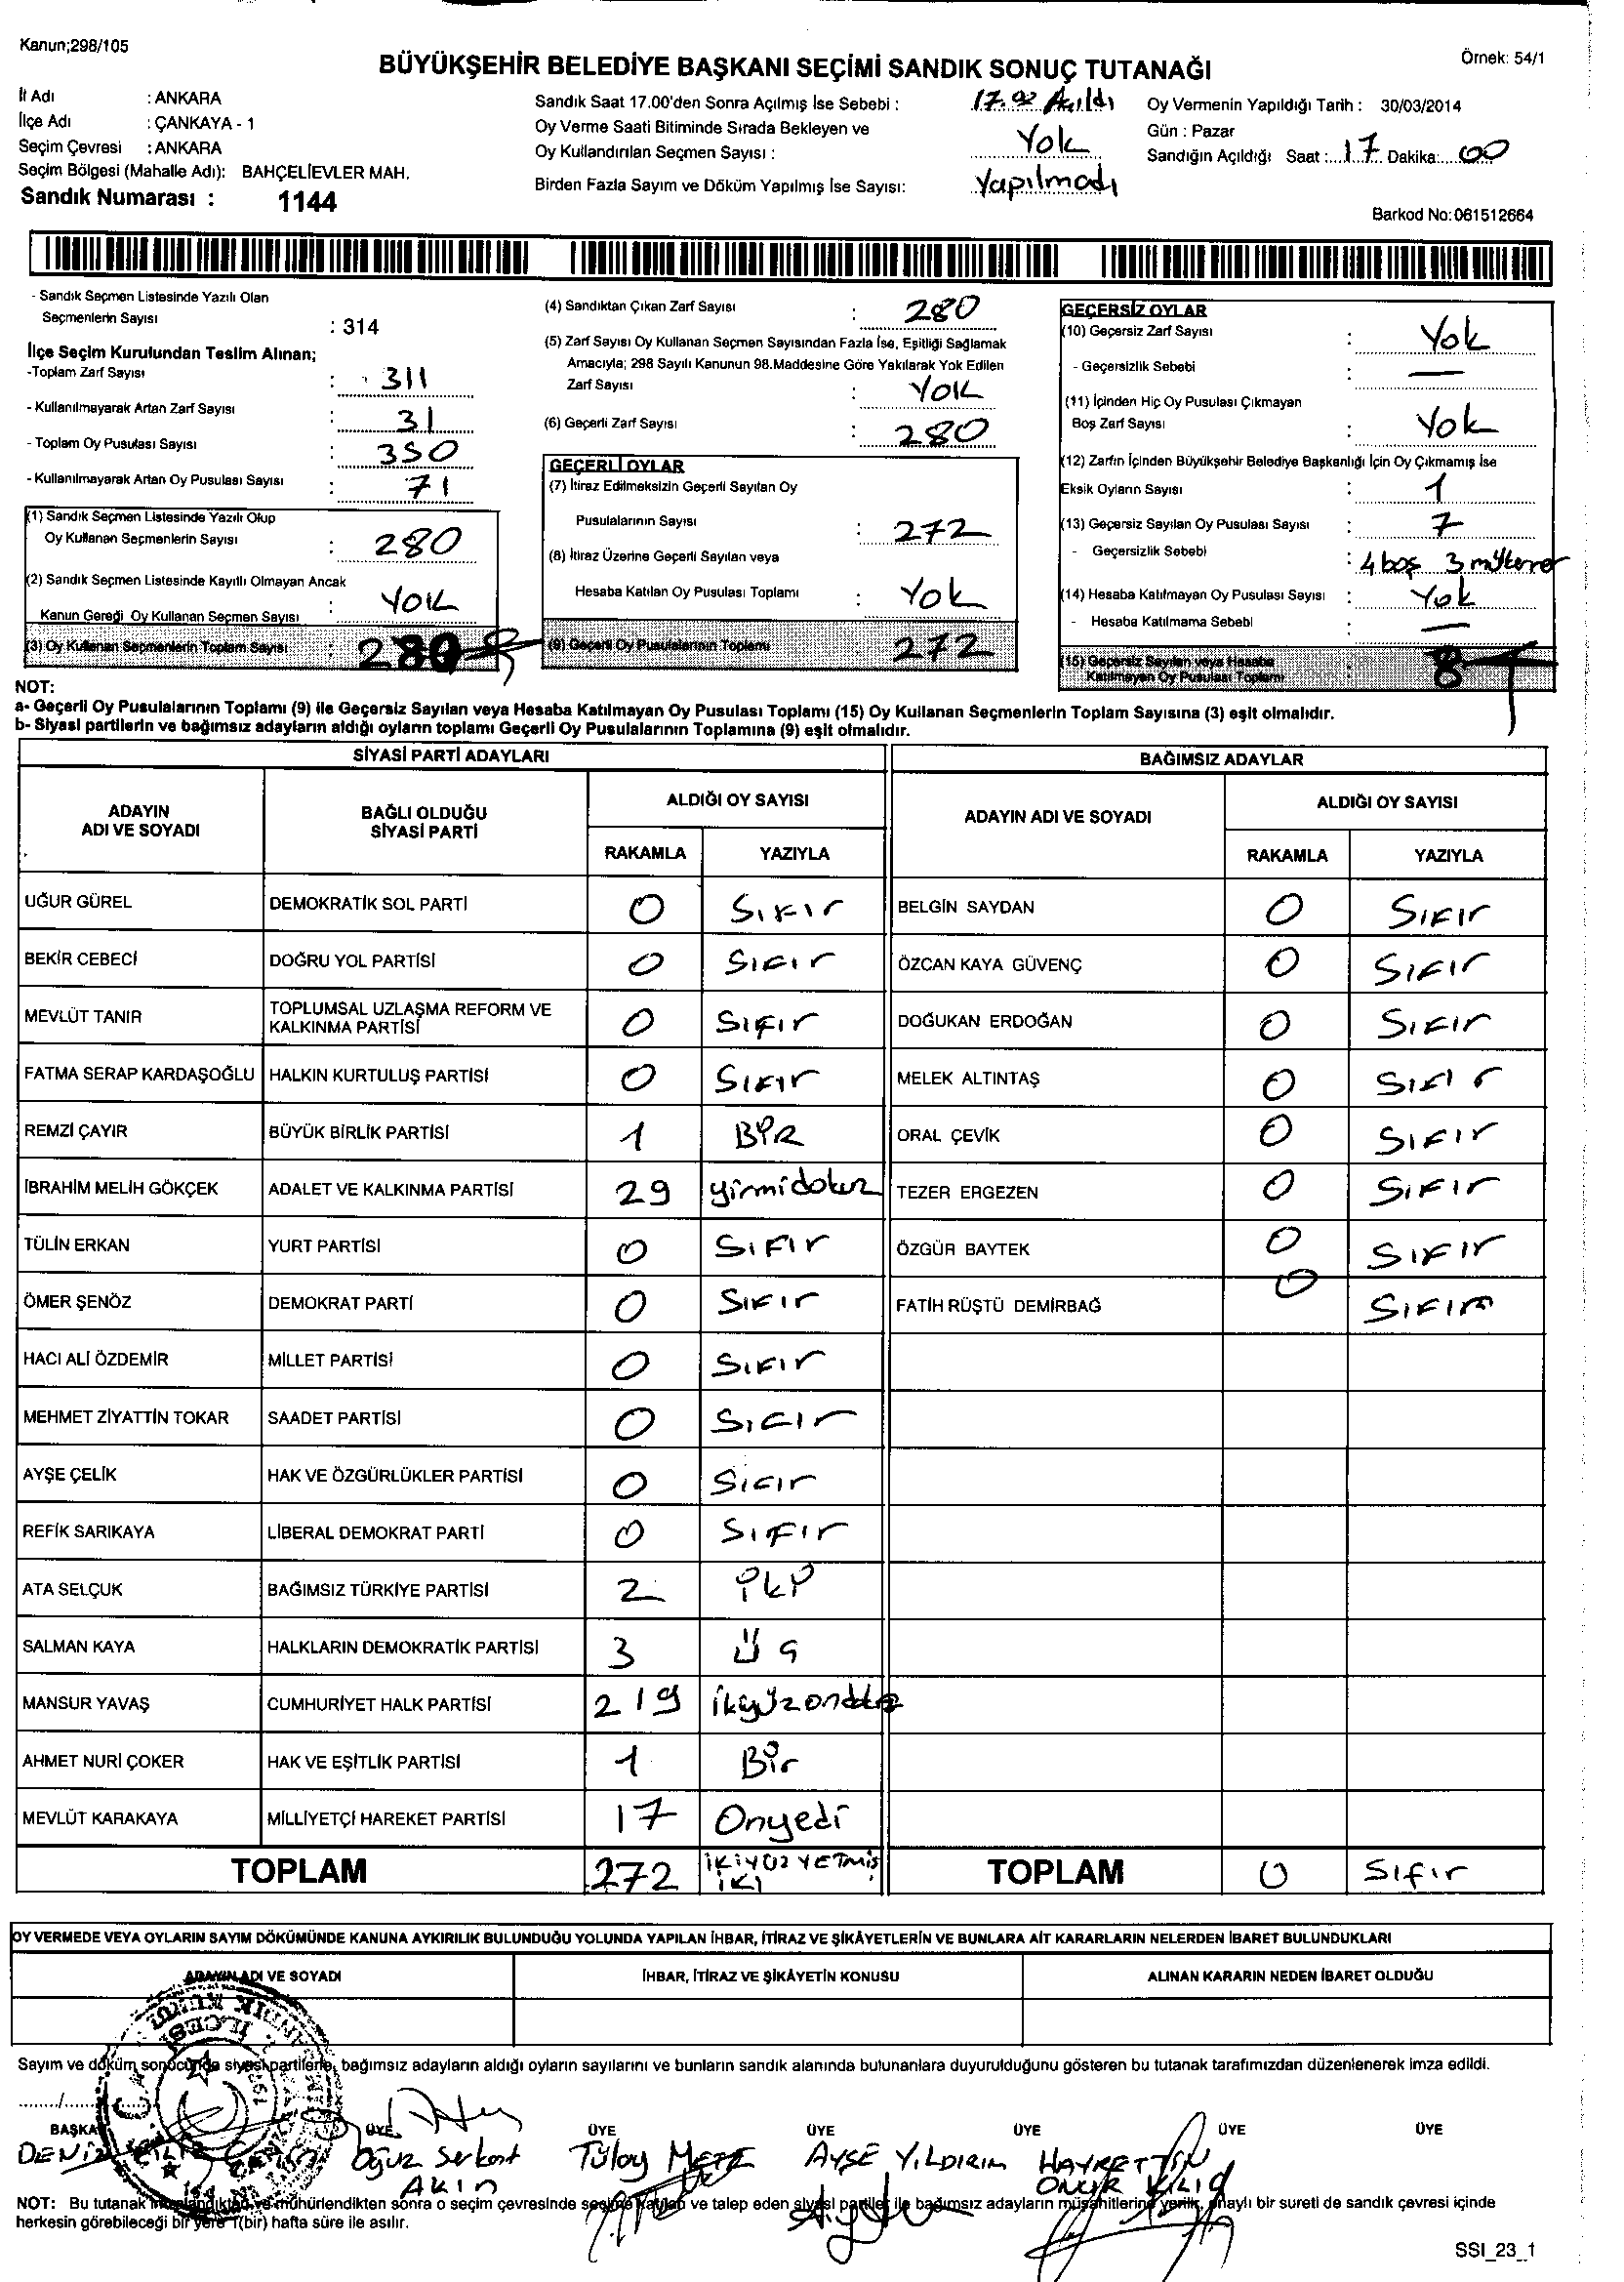 Kanun;298/105
BÜYÜKŞEHİR BELEDİYE BAŞKANI SEÇİMİ SANDIK SONUÇ TUTANAĞI
Örnek: 54/1
İl Adı : ANKARA
İlçe Adı : ÇANKAYA - 1
Seçim Çevresi : ANKARA
Seçim Bölgesi (Mahalle Adı): BAHÇELİEVLER MAH.
Sandık Numarası : 1144
Sandık Saat 17.00'den Sonra Açılmış İse Sebebi : 17.00 Açıldı
Oy Verme Saati Bitiminde Sırada Bekleyen ve
Oy Kullandırılan Seçmen Sayısı : Yok
Birden Fazla Sayım ve Döküm Yapılmış İse Sayısı: Yapılmadı
Oy Vermenin Yapıldığı Tarih : 30/03/2014
Gün : Pazar
Sandığın Açıldığı Saat : 17 Dakika: 00
Barkod No:061512664
- Sandık Seçmen Listesinde Yazılı Olan
Seçmenlerin Sayısı : 314
İlçe Seçim Kurulundan Teslim Alınan;
-Toplam Zarf Sayısı : 311
- Kullanılmayarak Artan Zarf Sayısı : 31
- Toplam Oy Pusulası Sayısı : 350
- Kullanılmayarak Artan Oy Pusulası Sayısı : 71
(1) Sandık Seçmen Listesinde Yazılı Olup
Oy Kullanan Seçmenlerin Sayısı : 280
(2) Sandık Seçmen Listesinde Kayıtlı Olmayan Ancak
Kanun Gereği Oy Kullanan Seçmen Sayısı : YOK
(3) Oy Kullanan Seçmenlerin Toplam Sayısı : 280
(4) Sandıktan Çıkan Zarf Sayısı : 280
(5) Zarf Sayısı Oy Kullanan Seçmen Sayısından Fazla İse, Eşitliği Sağlamak
Amacıyla; 298 Sayılı Kanunun 98.Maddesine Göre Yakılarak Yok Edilen
Zarf Sayısı : YOK
(6) Geçerli Zarf Sayısı : 280
GEÇERLİ OYLAR
(7) İtiraz Edilmeksizin Geçerli Sayılan Oy
Pusulalarının Sayısı : 272
(8) İtiraz Üzerine Geçerli Sayılan veya
Hesaba Katılan Oy Pusulası Toplamı : Yok
(9) Geçerli Oy Pusulalarının Toplamı 272
GEÇERSİZ OYLAR
(10) Geçersiz Zarf Sayısı : Yok
- Geçersizlik Sebebi : —
(11) İçinden Hiç Oy Pusulası Çıkmayan
Boş Zarf Sayısı : Yok
(12) Zarfın İçinden Büyükşehir Belediye Başkanlığı İçin Oy Çıkmamış İse
Eksik Oyların Sayısı : 1
(13) Geçersiz Sayılan Oy Pusulası Sayısı : 7
- Geçersizlik Sebebi : 4 boş 3 mükerrer
(14) Hesaba Katılmayan Oy Pusulası Sayısı : Yok
- Hesaba Katılmama Sebebi : —
(15) Geçersiz Sayılan veya Hesaba
Katılmayan Oy Pusulası Toplamı : 8
NOT:
a- Geçerli Oy Pusulalarının Toplamı (9) ile Geçersiz Sayılan veya Hesaba Katılmayan Oy Pusulası Toplamı (15) Oy Kullanan Seçmenlerin Toplam Sayısına (3) eşit olmalıdır.
b- Siyasi partilerin ve bağımsız adayların aldığı oyların toplamı Geçerli Oy Pusulalarının Toplamına (9) eşit olmalıdır.
SİYASİ PARTİ ADAYLARI
ADAYIN
ADI VE SOYADI
BAĞLI OLDUĞU
SİYASİ PARTİ
ALDIĞI OY SAYISI
RAKAMLA YAZIYLA
UĞUR GÜREL DEMOKRATİK SOL PARTİ 0 Sıfır
BEKİR CEBECİ DOĞRU YOL PARTİSİ 0 Sıfır
MEVLÜT TANIR TOPLUMSAL UZLAŞMA REFORM VE
KALKINMA PARTİSİ 0 Sıfır
FATMA SERAP KARDAŞOĞLU HALKIN KURTULUŞ PARTİSİ 0 Sıfır
REMZİ ÇAYIR BÜYÜK BİRLİK PARTİSİ 1 BİR
İBRAHİM MELİH GÖKÇEK ADALET VE KALKINMA PARTİSİ 29 yirmidokuz
TÜLİN ERKAN YURT PARTİSİ 0 Sıfır
ÖMER ŞENÖZ DEMOKRAT PARTİ 0 Sıfır
HACI ALİ ÖZDEMİR MİLLET PARTİSİ 0 Sıfır
MEHMET ZİYATTİN TOKAR SAADET PARTİSİ 0 Sıfır
AYŞE ÇELİK HAK VE ÖZGÜRLÜKLER PARTİSİ 0 Sıfır
REFİK SARIKAYA LİBERAL DEMOKRAT PARTİ 0 Sıfır
ATA SELÇUK BAĞIMSIZ TÜRKİYE PARTİSİ 2 İki
SALMAN KAYA HALKLARIN DEMOKRATİK PARTİSİ 3 Üç
MANSUR YAVAŞ CUMHURİYET HALK PARTİSİ 219 ikiyüzondokuz
AHMET NURİ ÇOKER HAK VE EŞİTLİK PARTİSİ 1 Bir
MEVLÜT KARAKAYA MİLLİYETÇİ HAREKET PARTİSİ 17 Onyedi
TOPLAM 272 İKİYÜZYETMİŞ
İKİ
BAĞIMSIZ ADAYLAR
ADAYIN ADI VE SOYADI
ALDIĞI OY SAYISI
RAKAMLA YAZIYLA
BELGİN SAYDAN 0 Sıfır
ÖZCAN KAYA GÜVENÇ 0 Sıfır
DOĞUKAN ERDOĞAN 0 Sıfır
MELEK ALTINTAŞ 0 Sıfır
ORAL ÇEVİK 0 Sıfır
TEZER ERGEZEN 0 Sıfır
ÖZGÜR BAYTEK 0 Sıfır
FATİH RÜŞTÜ DEMİRBAĞ 0 Sıfır
TOPLAM 0 Sıfır
OY VERMEDE VEYA OYLARIN SAYIM DÖKÜMÜNDE KANUNA AYKIRILIK BULUNDUĞU YOLUNDA YAPILAN İHBAR, İTİRAZ VE ŞİKÂYETLERİN VE BUNLARA AİT KARARLARIN NELERDEN İBARET BULUNDUKLARI
ADAYIN ADI VE SOYADI İHBAR, İTİRAZ VE ŞİKÂYETİN KONUSU ALINAN KARARIN NEDEN İBARET OLDUĞU
Sayım ve döküm sonucunda siyasi partilerle, bağımsız adayların aldığı oyların sayılarını ve bunların sandık alanında bulunanlara duyurulduğunu gösteren bu tutanak tarafımızdan düzenlenerek imza edildi.
BAŞKAN ÜYE ÜYE ÜYE ÜYE ÜYE ÜYE
DENİZ
Oğuz Serkant
AKIN
Tülay METE
AYŞE YILDIRIM
HAYRETTİN
ONUR KILIÇ
NOT: Bu tutanak imzalandıktan ve mühürlendikten sonra o seçim çevresinde seçime katılan ve talep eden siyasi partiler ile bağımsız adayların müşahitlerine verilir, onaylı bir sureti de sandık çevresi içinde
herkesin görebileceği bir yere 1(bir) hafta süre ile asılır.
SSI_23_1